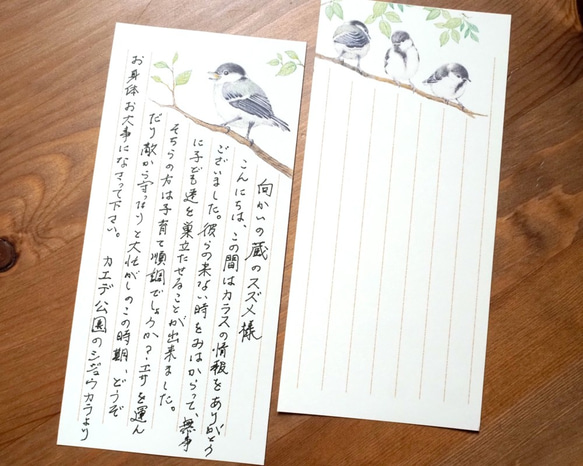 向かいの蔵のスズメ様
こんにちは、この間はカラスの情報をありがとう
ございました。彼らの来ない時をみはからって、無事
に子ども達を巣立たせることが出来ました。
そちらの方は子育て順調でしょうか？エサを運ん
だり敵から守ったりと大忙がしのこの時期、どうぞ
お身体お大事になさって下さい。
カエデ公園のシジュウカラより